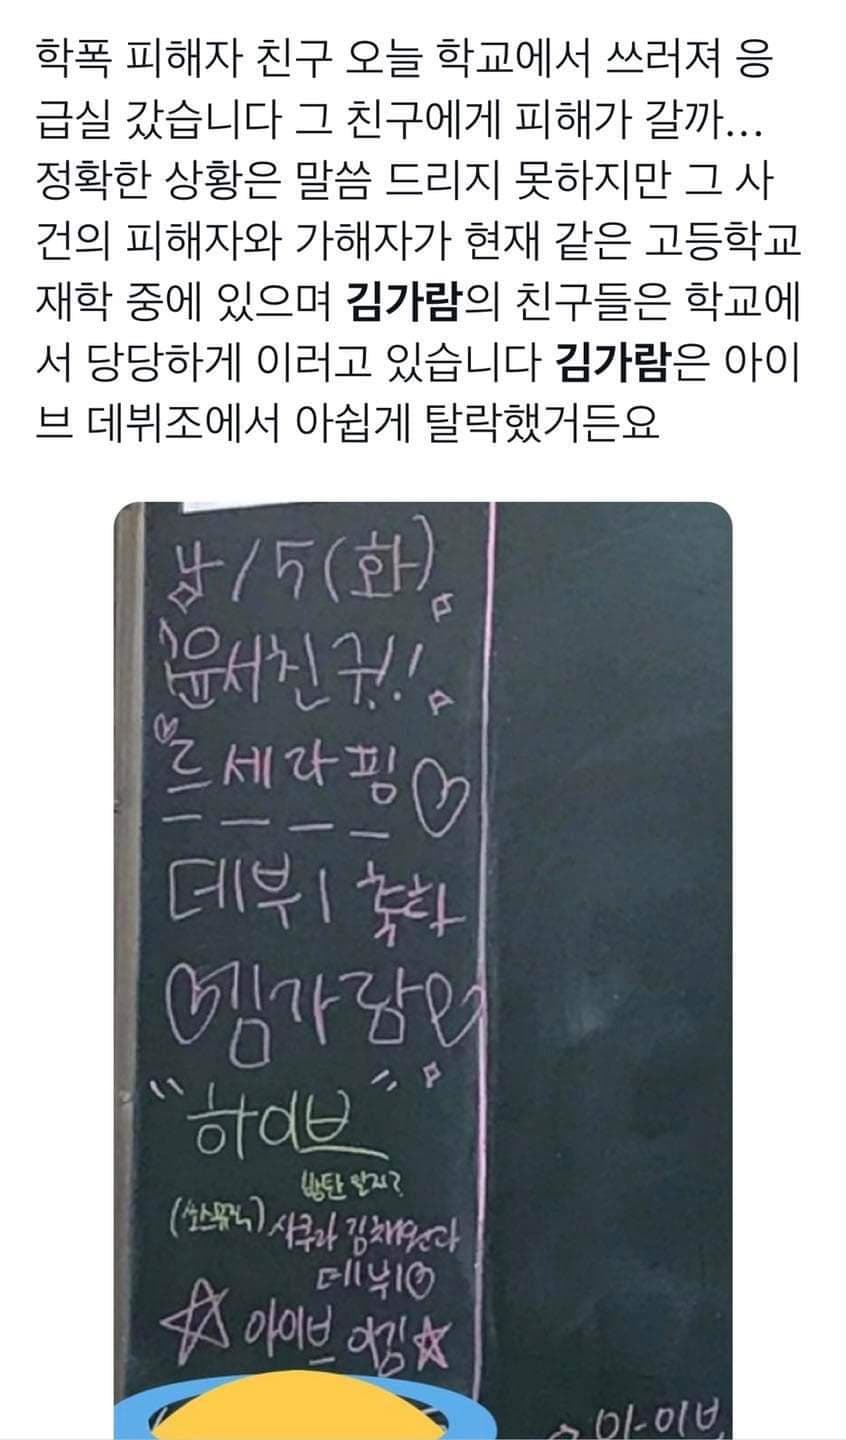 학폭 피해자 친구 오늘 학교에서 쓰러져 응
급실 갔습니다 그 친구에게 피해가 갈까...
정확한 상황은 말씀 드리지 못하지만 그 사
건의 피해자와 가해자가 현재 같은 고등학교
재학 중에 있으며 김가람의 친구들은 학교에
서 당당하게 이러고 있습니다 김가람은 아이
브 데뷔조에서 아쉽게 탈락했거든요
4/5(화)
윤서친구!
르세라핌♡
데뷔 축하
♡김가람♡
"하이브"
방탄 알지?
(쏘스뮤직) 사쿠라 김채원과
데뷔♡
☆아이브 ☆
아이브